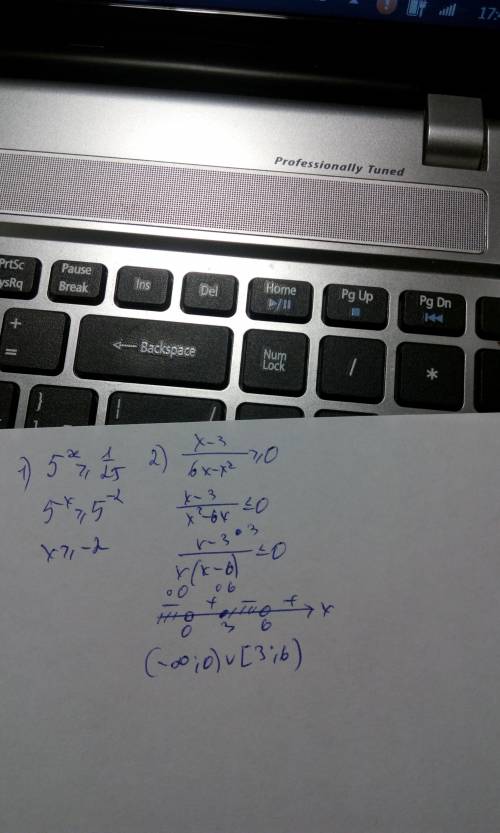 17:4
Professionally Tuned
PrtSc
ysRq
Pause
Break
Ins
Del
Home
Pg Up
Pg Dn
+
=
Backspace
Num
Lock
/
*
}
]
|
/
1) 5^x ⩾ 1/25
5^x ⩾ 5^-2
x ⩾ -2
2) (x-3)/(6x-x²) ⩾ 0
(x-3)/(x²-6x) ≤ 0
(x-3)/(x(x-6)) ≤ 0
•3
∘0 ∘6
− + − +
0 3 6 x
(-∞;0)∪[3;6)